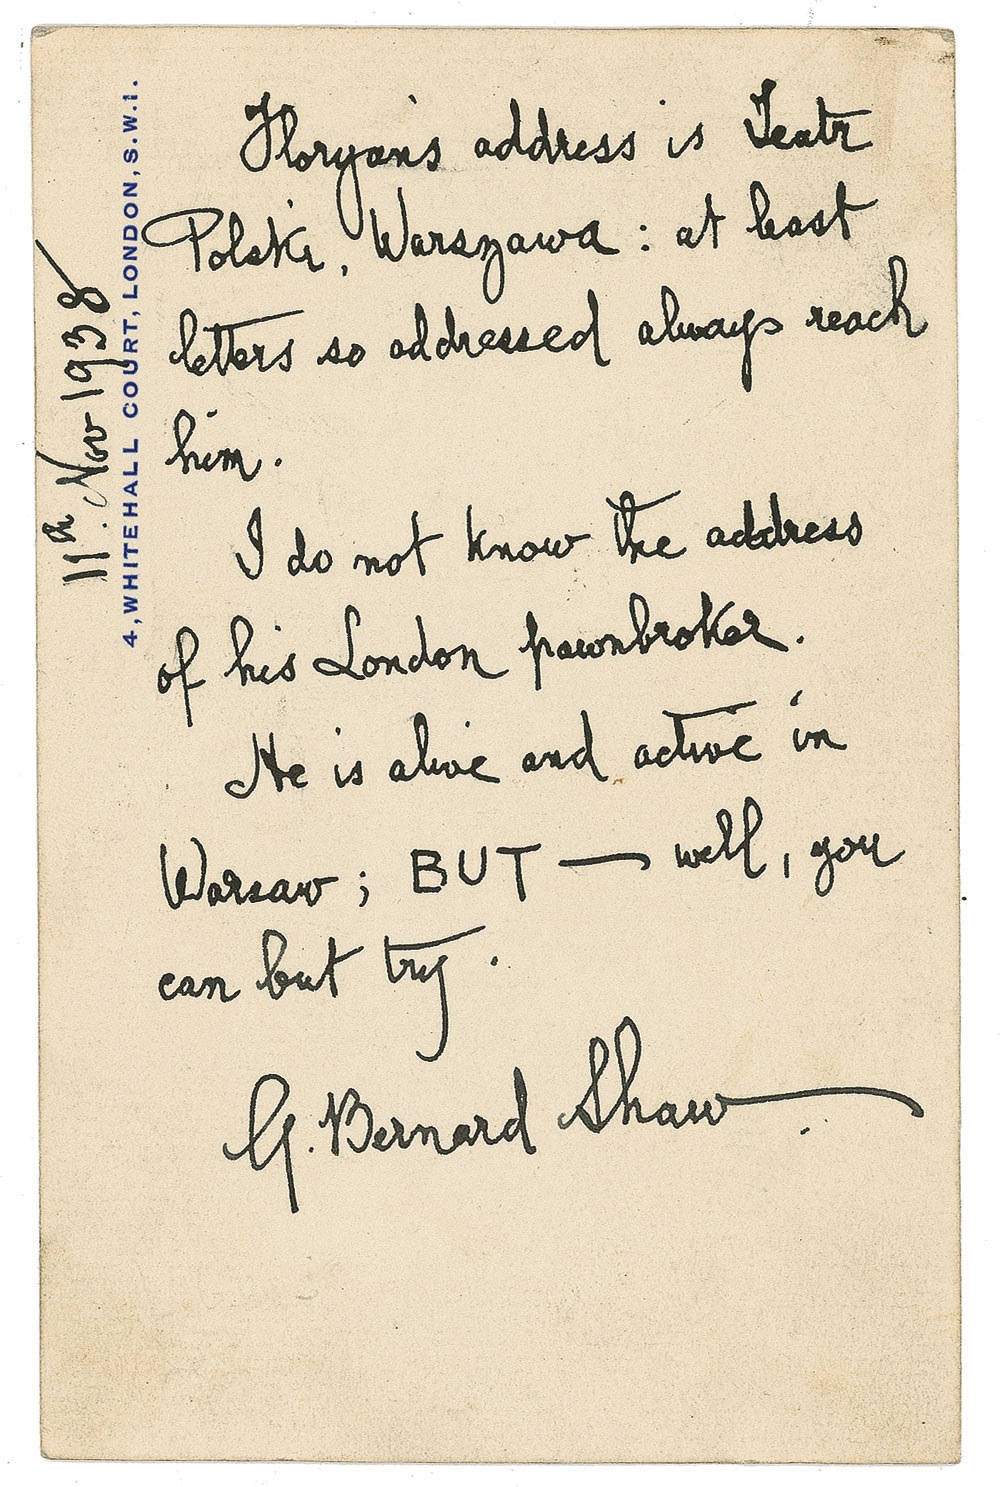 4, WHITEHALL COURT, LONDON, S.W.1.
11th. Nov 1938
Floryan's address is Teatr
Polski, Warszawa : at least
letters so addressed always reach
him.
I do not know the address
of his London pawnbroker.
He is alive and active in
Warsaw ; BUT — well, you
can but try.
G. Bernard Shaw